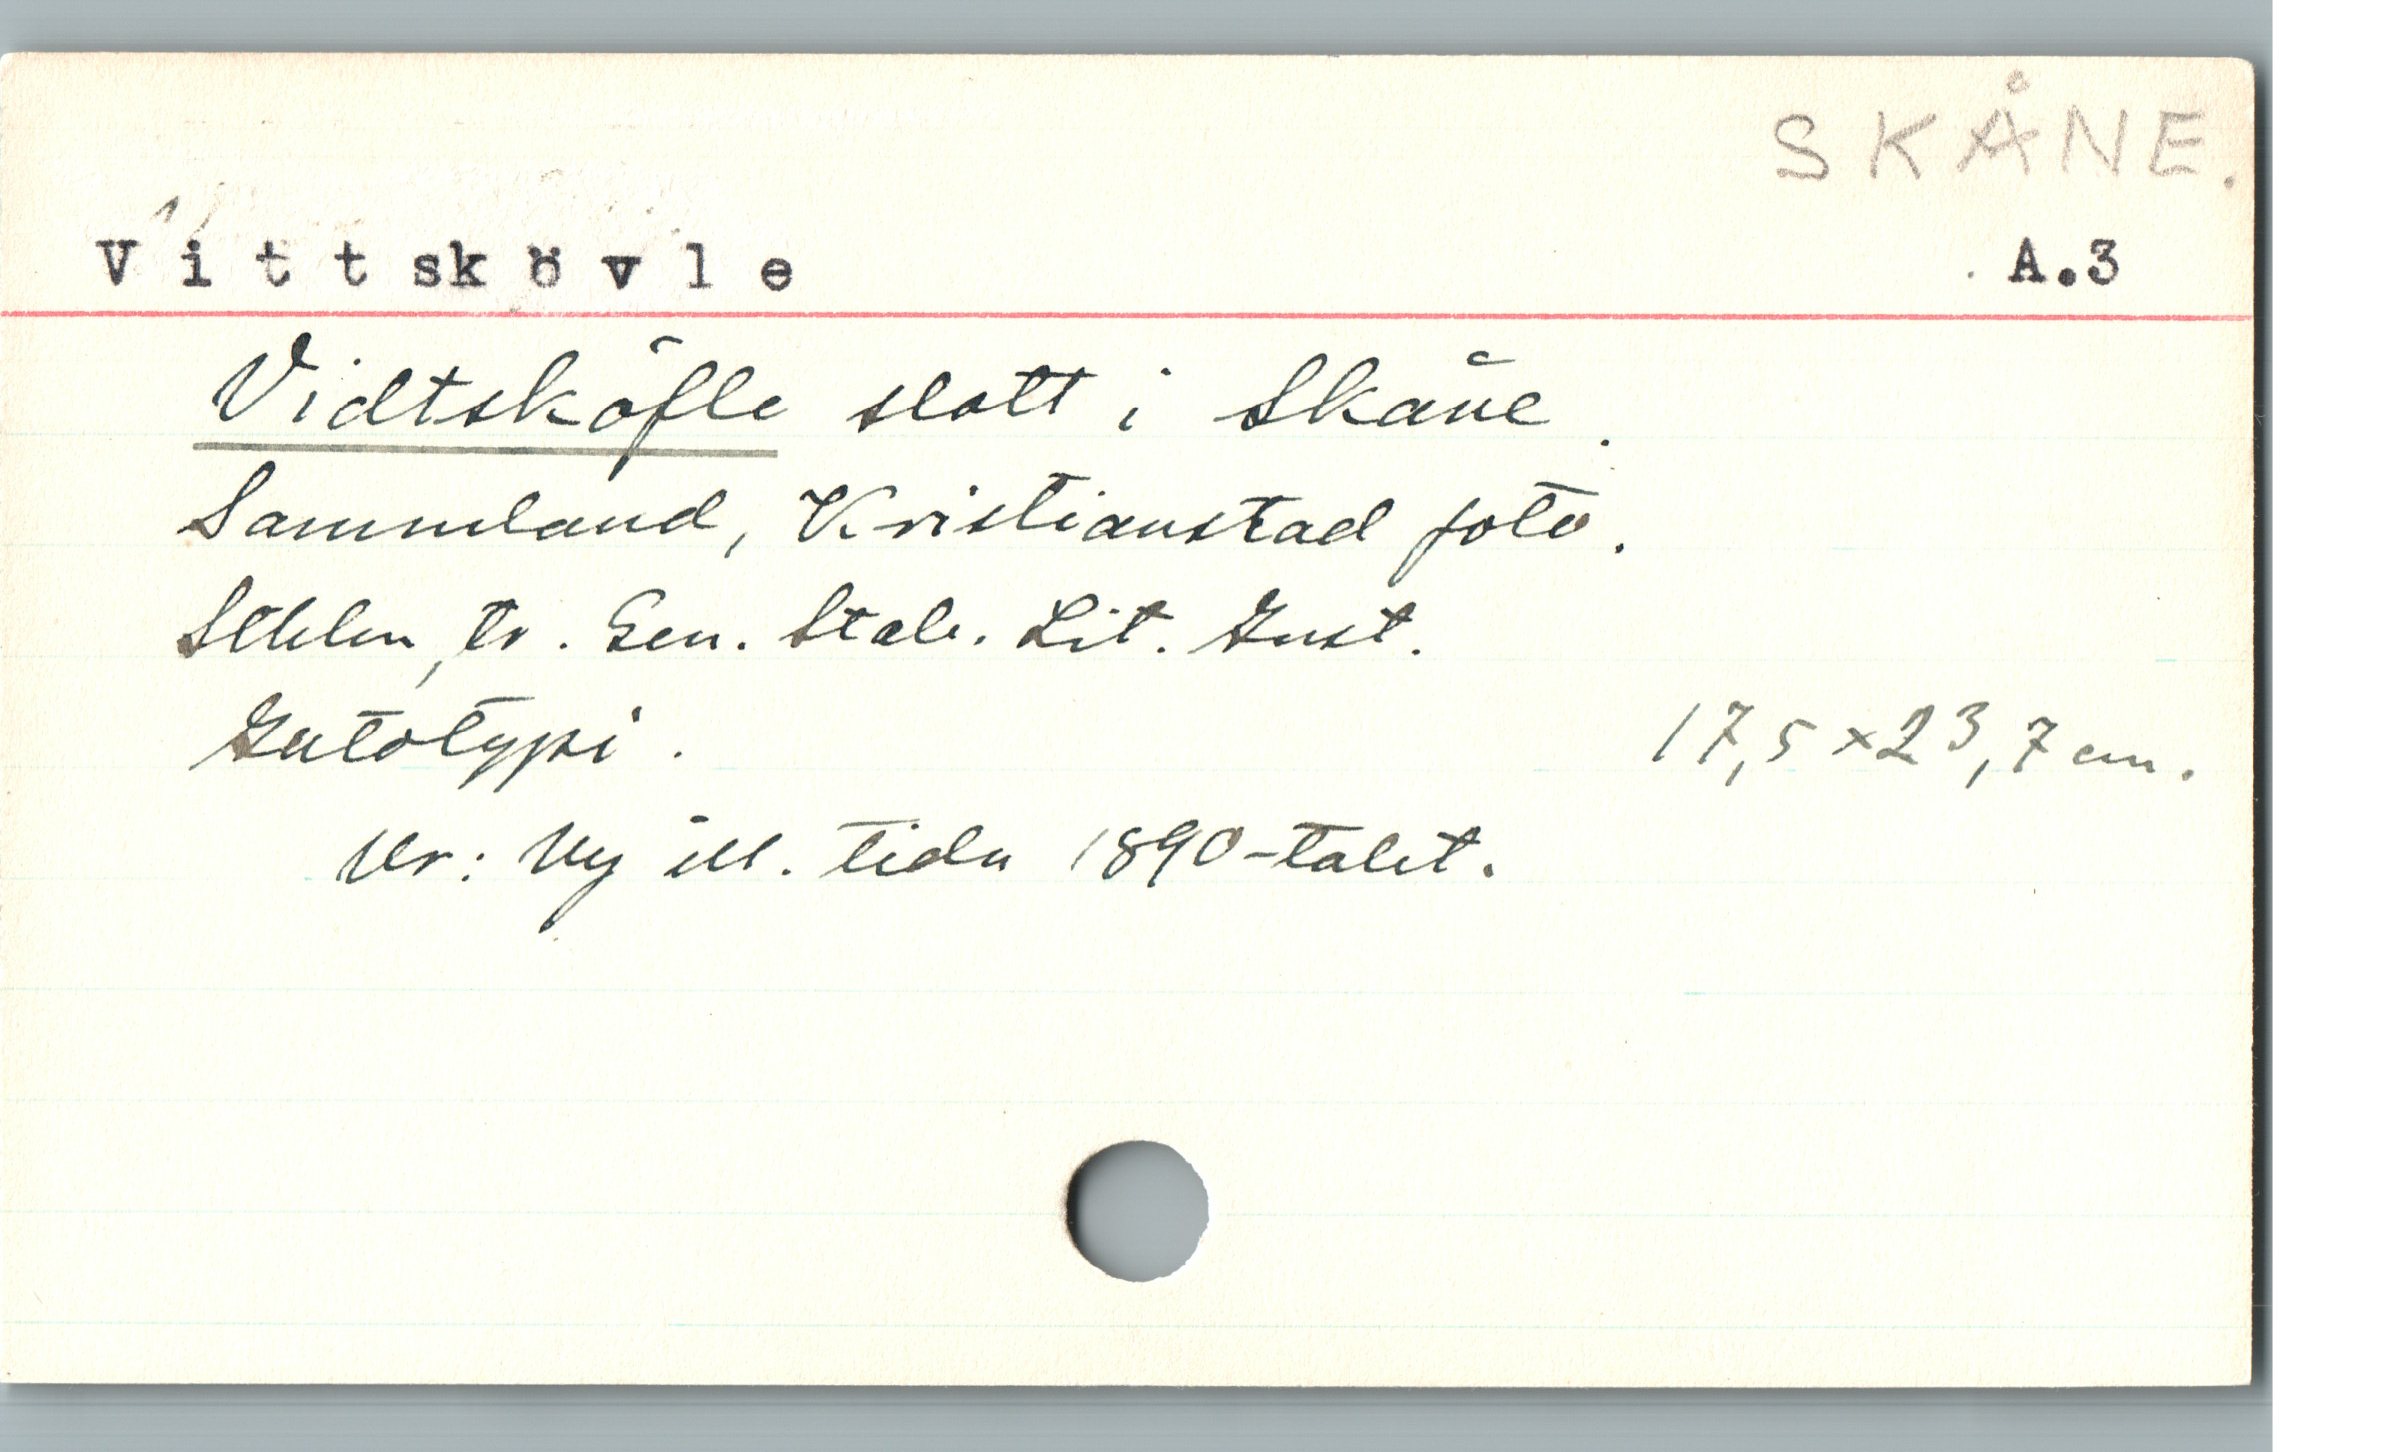 SKÅNE.
Vittskövle A.3
Vidtsköfle slott i Skåne.
Sammland, Kristianstad foto.
Sthlm, tr. Gen. Stab. Lit. Inst.
Autotypi. 17,5 x 23,7 cm.
Ur: Ny ill. tidn 1890-talet.